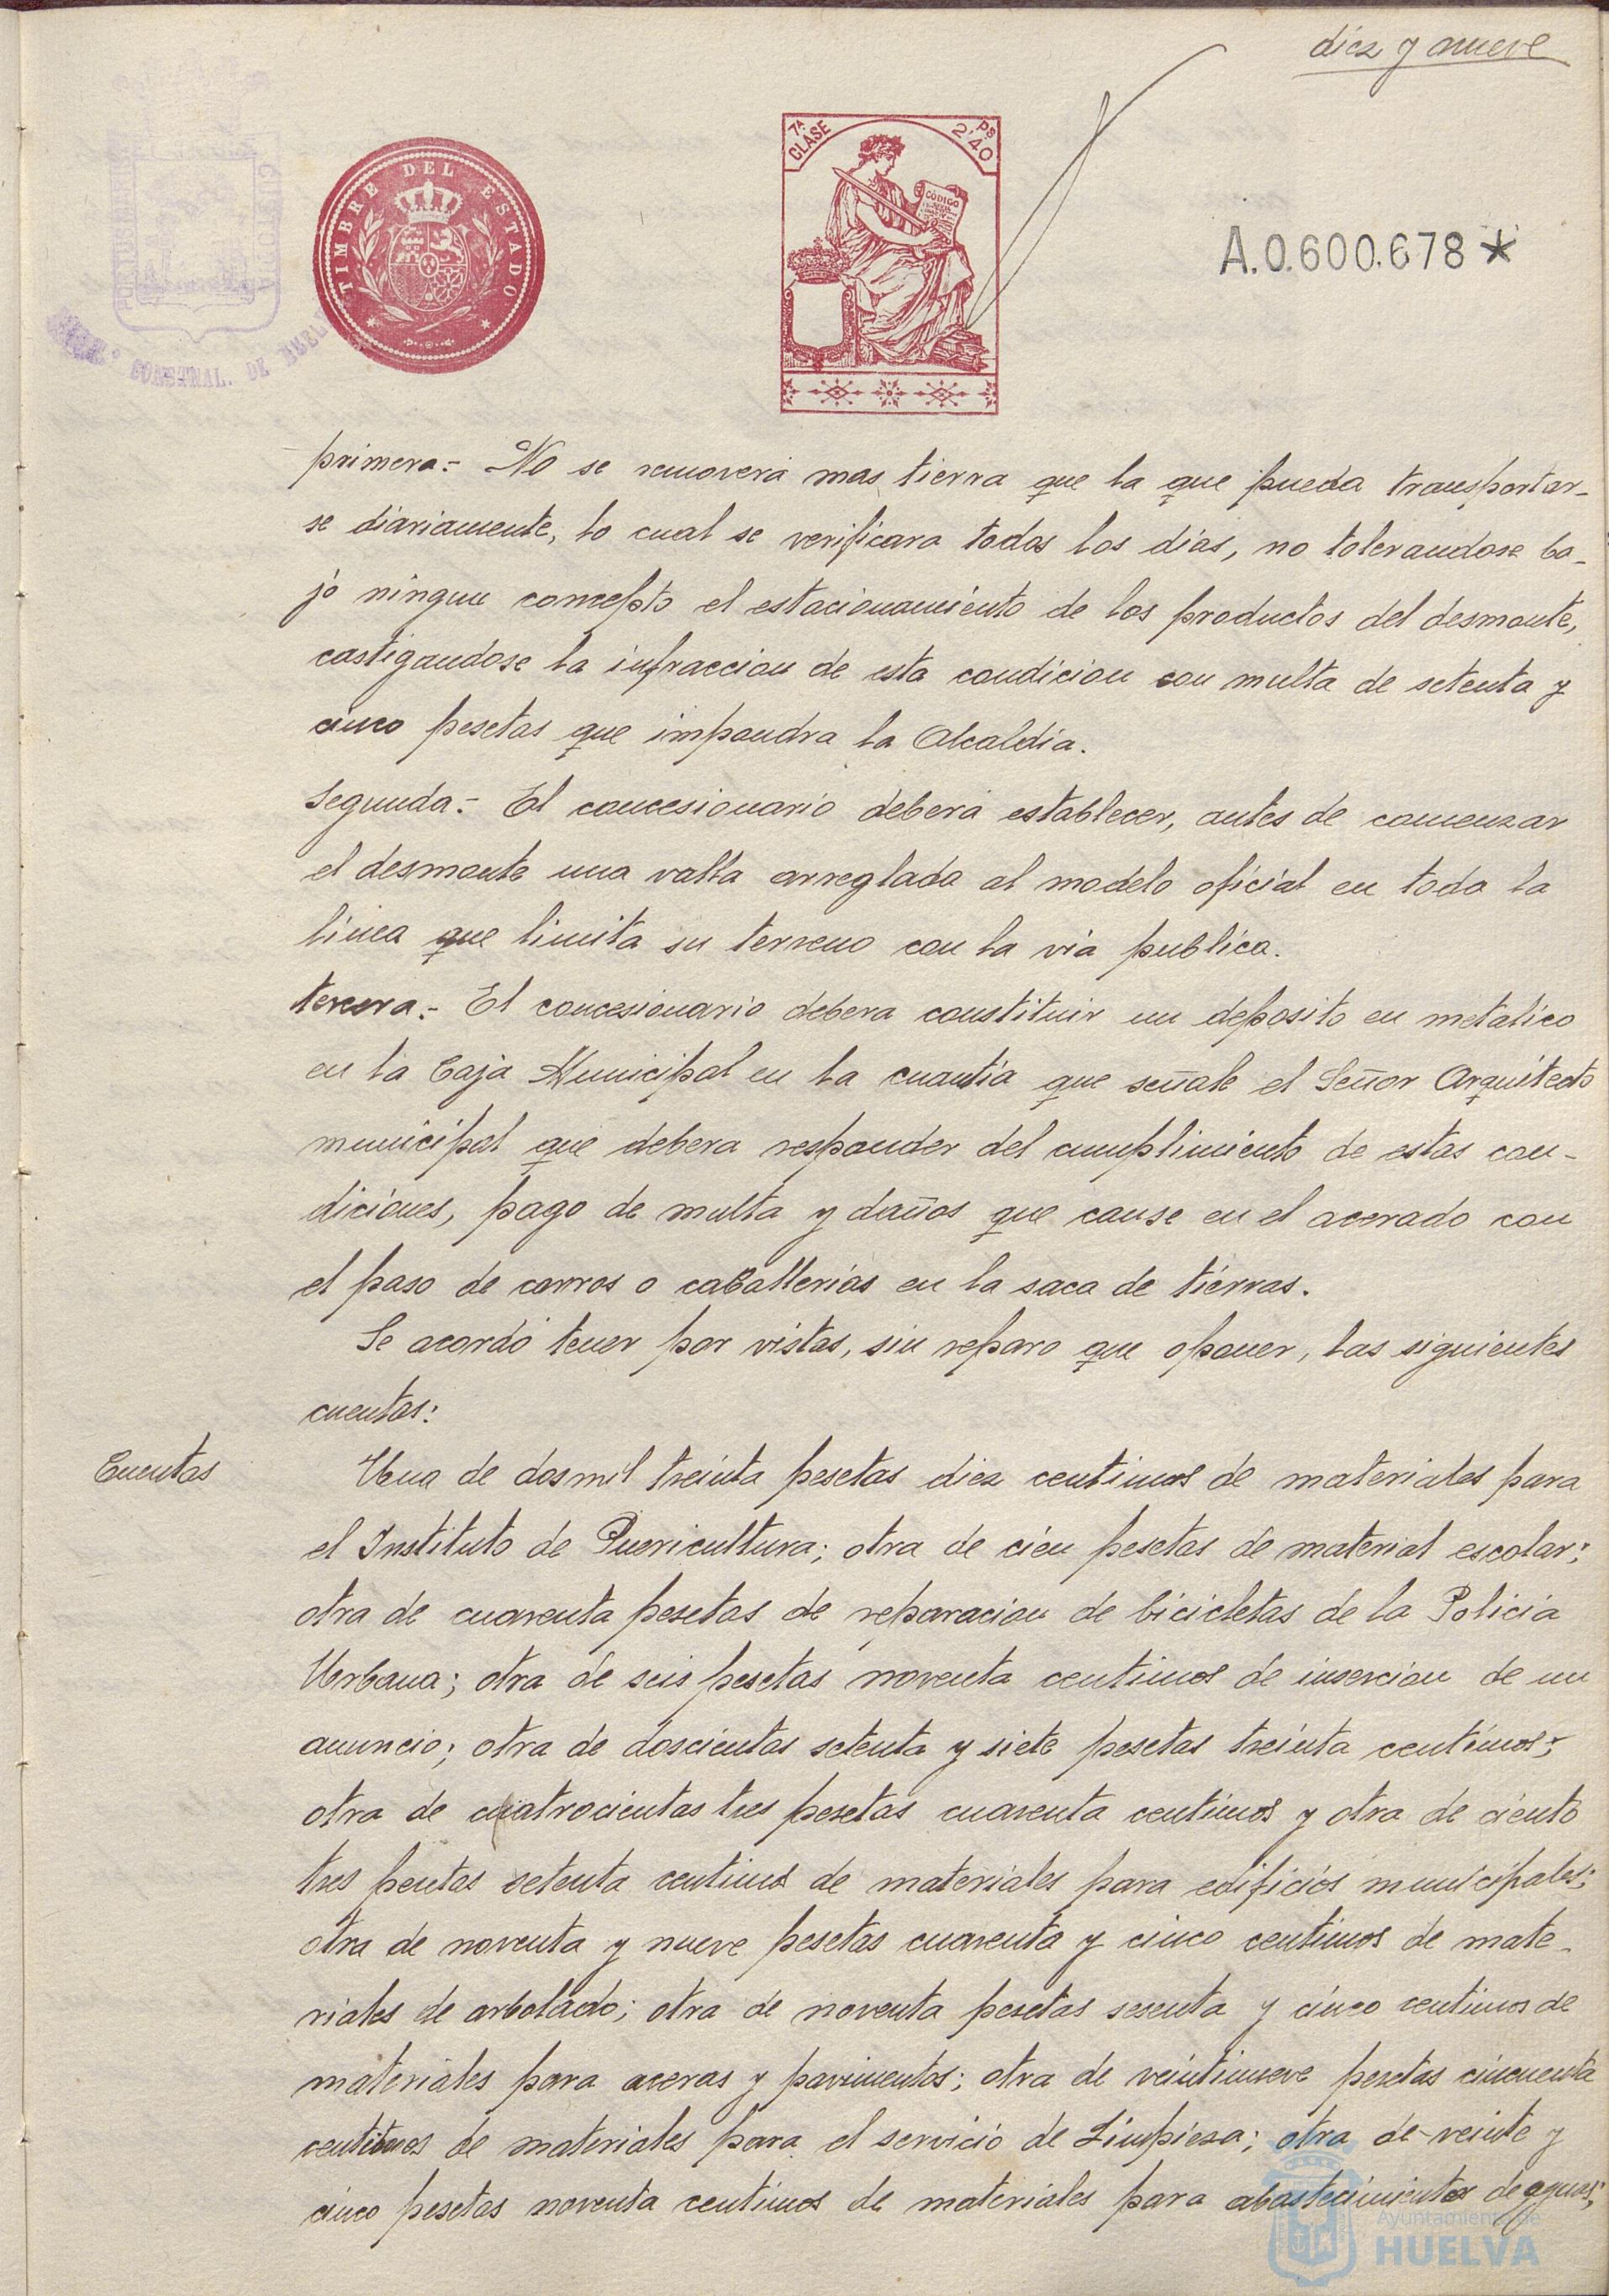 diez y nueve
TIMBRE DEL ESTADO
7ª CLASE
Ps 2'40
CODIGO
A.0.600.678*
CONSTNAL. DE HUEL
primera.- No se removerá mas tierra que la que pueda transportar-
se diariamente, lo cual se verificara todos los dias, no tolerandose ba-
jo ningun concepto el estacionamiento de los productos del desmonte,
castigandose la infraccion de esta condicion con multa de setenta y
cinco pesetas que impondra la Alcaldia.
Segunda.- El concesionario deberá establecer, antes de comenzar
el desmonte una valla arreglada al modelo oficial en toda la
linea que limita su terreno con la via publica.
tercera.- El concesionario debera constituir un deposito en metalico
en la Caja Municipal en la cuantia que señale el Señor Arquitecto
municipal que debera responder del cumplimiento de estas con-
diciones, pago de multa y daños que cause en el acerado con
el paso de carros o caballerias en la saca de tierras.
Se acordó tener por vistas, sin reparo que oponer, las siguientes
cuentas:
Cuentas
Una de dosmil treinta pesetas diez centimos de materiales para
el Instituto de Puericultura; otra de cien pesetas de material escolar;
otra de cuarenta pesetas de reparacion de bicicletas de la Policia
Urbana; otra de seis pesetas noventa centimos de insercion de un
anuncio; otra de doscientas setenta y siete pesetas treinta centimos;
otra de cuatrocientas tres pesetas cuarenta centimos y otra de ciento
tres pesetas setenta centimos de materiales para edificios municipales;
otra de noventa y nueve pesetas cuarenta y cinco centimos de mate-
riales de arbolado; otra de noventa pesetas sesenta y cinco centimos de
materiales para aceras y pavimentos; otra de veintinueve pesetas cincuenta
centimos de materiales para el servicio de Limpieza; otra de veinte y
cinco pesetas noventa centimos de materiales para abastecimientos de aguas;
Ayuntamiento de
HUELVA